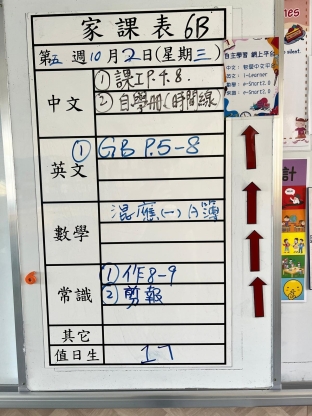 家課表 6B
第五週10月2日(星期三)
中文
① 課工 P.4.8.
② 自學冊(時間線)
英文
① GB P.5-8
數學
混應(一) A簿
常識
① 作 8-9
② 剪報
其它
值日生
17
自主學習 網上平台
i-Learner
e-Smart2.0
e-Smart2.0
計
silent.